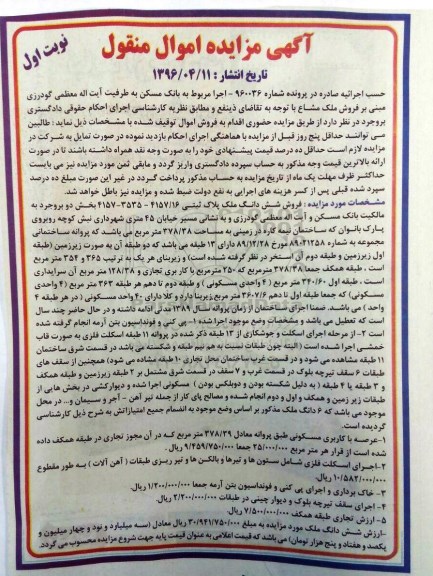 نوبت اول
آگهی مزایده اموال منقول
تاریخ انتشار : ۱۳۹۶/۰۴/۱۱
حسب اجرائیه صادره در پرونده شماره ۹۶۰۰۳۶ - اجرا مربوط به بانک مسکن به طرفیت آیت اله معظمی گودرزی
مبنی بر فروش ملک مشاع با توجه به تقاضای ذینفع و مطابق نظریه کارشناسی اجرای احکام حقوقی دادگستری
بروجرد در نظر دارد از طریق مزایده حضوری اقدام به فروش اموال توقیف شده با مشخصات ذیل نماید : طالبین
می توانند حداقل پنج روز قبل از مزایده با هماهنگی اجرای احکام بازدید نموده در صورت تمایل به شرکت در
مزایده لازم است حداقل ده درصد قیمت پیشنهادی خود را به صورت وجه نقد همراه داشته باشند تا در صورت
ارائه بالاترین قیمت وجه مذکور به حساب سپرده دادگستری واریز گردد و مابقی ثمن مورد مزایده نیز می بایست
حداکثر ظرف مهلت یک ماه از تاریخ مزایده به حساب مذکور پرداخت گردد در غیر این صورت مبلغ ده درصد
سپرده شده قبلی پس از کسر هزینه های اجرایی به نفع دولت ضبط شده و مزایده نیز باطل خواهد شد.
مشخصات مورد مزایده : فروش شش دانگ ملک پلاک ثبتی ۴۱۵۷/۱۶ - ۳۵۳۵-۴۱۵۷ بخش دو بروجرد به
مالکیت بانک مسکن و آیت اله معظمی گودرزی و به نشانی مسیر خیابان ۴۵ متری شهرداری نبش کوچه روبروی
پارک بانوان که ساختمان نیمه کاره در زمینی به مساحت ۳۷۸/۳۸ متر مربع می باشد که پروانه ساختمانی
مجموعه به شماره ۸۹۰۲۱۲۵۸ مورخ ۸۹/۱۲/۲۸ دارای ۱۳ طبقه می باشد که دو طبقه آن به صورت زیرزمین (طبقه
اول زیرزمین و طبقه دوم آن استخر در نظر گرفته شده است) و زیربنای هر یک به ترتیب ۳۶۵ و ۳۵۴ متر مربع
است ، طبقه همکف جمعا ۳۷۸/۳۸ مترمربع که ۲۵۰ مترمربع با کاربری تجاری و ۱۲۸/۳۸ متر مربع آن سرایداری
است . طبقه اول ۳۴۰/۶۰ متر مربع ( ۴ واحدی مسکونی ) و طبقه دوم تا دهم هر طبقه ۳۶۳ متر مربع (۴ واحدی
مسکونی) که جمعا طبقه اول تا دهم ۳۶۰۷/۶ متر مربع زیربنا دارد و کلا دارای ۴۰ واحد مسکونی ( در هر طبقه ۴
واحد) می باشد. ضمنا اجرای ساختمان از زمان پروانه سال ۱۳۸۹ مدتی ادامه داشته و در حال حاضر چند سال
است که تعطیل می باشد و مشخصات وضع موجود اجرا شده ۱- پی کنی و فونداسیون بتن آرمه انجام گرفته شده
است ۲- از مرحله اجرای اسکلت و جوشکاری از ۱۳ طبقه ذکر شده در پروانه ۱۱ طبقه اسکلت فلزی به صورت قاب
خمشی اجرا شده است (البته چون طبقات نسبت به هم نیم طبقه و شکسته می باشد در قسمت شرق ساختمان
۱۱ طبقه مشاهده می شود و در قسمت غرب ساختمان محل تجاری ۱۰ طبقه مشاهده می شود) همچنین از سقف های
طبقات ۶ سقف تیرچه بلوک در قسمت غرب و ۷ سقف در قسمت شرق مشتمل بر ۲ طبقه زیرزمین و طبقه همکف
و ۳ طبقه یا ۴ طبقه ( به دلیل شکسته بودن و دوبلکس بودن ) مسکونی اجرا شده و دیوارکشی در بخش هایی از
طبقات زیر زمین و همکف و اول و دوم انجام شده و مصالح پای کار از جمله تیر آهن - آجر و سیمان و... در محل
موجود می باشد که ۶ دانگ ملک مذکور بر اساس وضع موجود به انضمام جمیع امتیازاتش به شرح ذیل کارشناسی
گردیده است.
۱-عرصه با کاربری مسکونی طبق پروانه معادل ۳۷۸/۳۹ متر مربع که در آن مجوز تجاری در طبقه همکف داده
شده است از قرار هر متر مربع ۲۵/۰۰۰/۰۰۰ جمعا ۹/۴۵۹/۷۵۰/۰۰۰ ریال .
۲-اجرای اسکلت فلزی شامل ستون ها و تیرها و بالکن ها و تیر ریزی طبقات ( آهن آلات ) به طور مقطوع
۱۰/۵۸۲/۰۰۰/۰۰۰ ریال.
۳- خاک برداری و اجرای پی کنی و فونداسیون بتن آرمه جمعا ۱/۲۰۰/۰۰۰/۰۰۰ ریال.
۴- اجرای سقف تیرچه بلوک و دیوار چینی در طبقات ۲/۲۰۰/۰۰۰/۰۰۰ ریال .
۵- ارزش تجاری طبقه همکف ۷/۵۰۰/۰۰۰/۰۰۰ ریال.
-ارزش شش دانگ ملک مورد مزایده به مبلغ ۳۰/۹۴۱/۷۵۰/۰۰۰ ریال معادل (سه میلیارد و نود و چهار میلیون و
یکصد و هفتاد و پنج هزار تومان) می باشد که قیمت اعلامی به عنوان قیمت پایه جهت شروع مزایده محسوب می گردد.